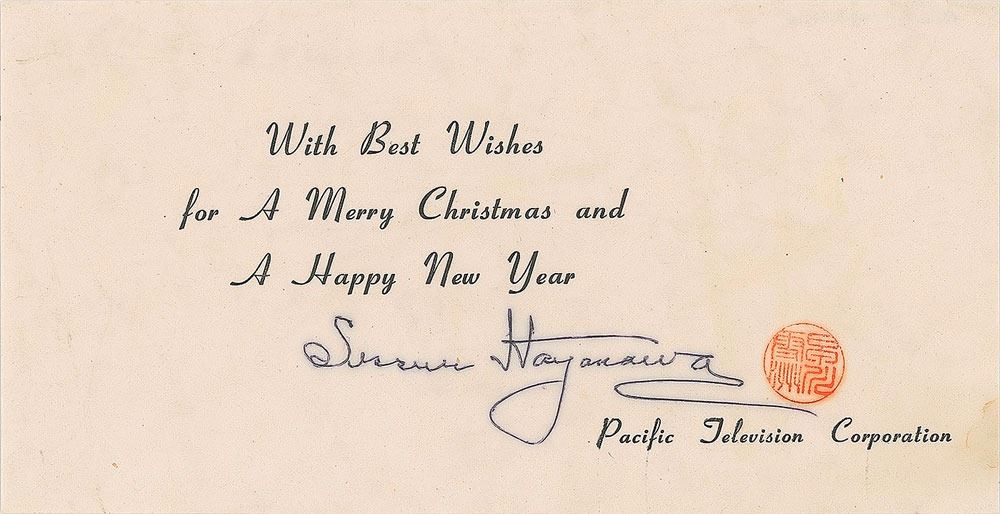 With Best Wishes
for A Merry Christmas and
A Happy New Year
Sessue Hayakawa
Pacific Television Corporation